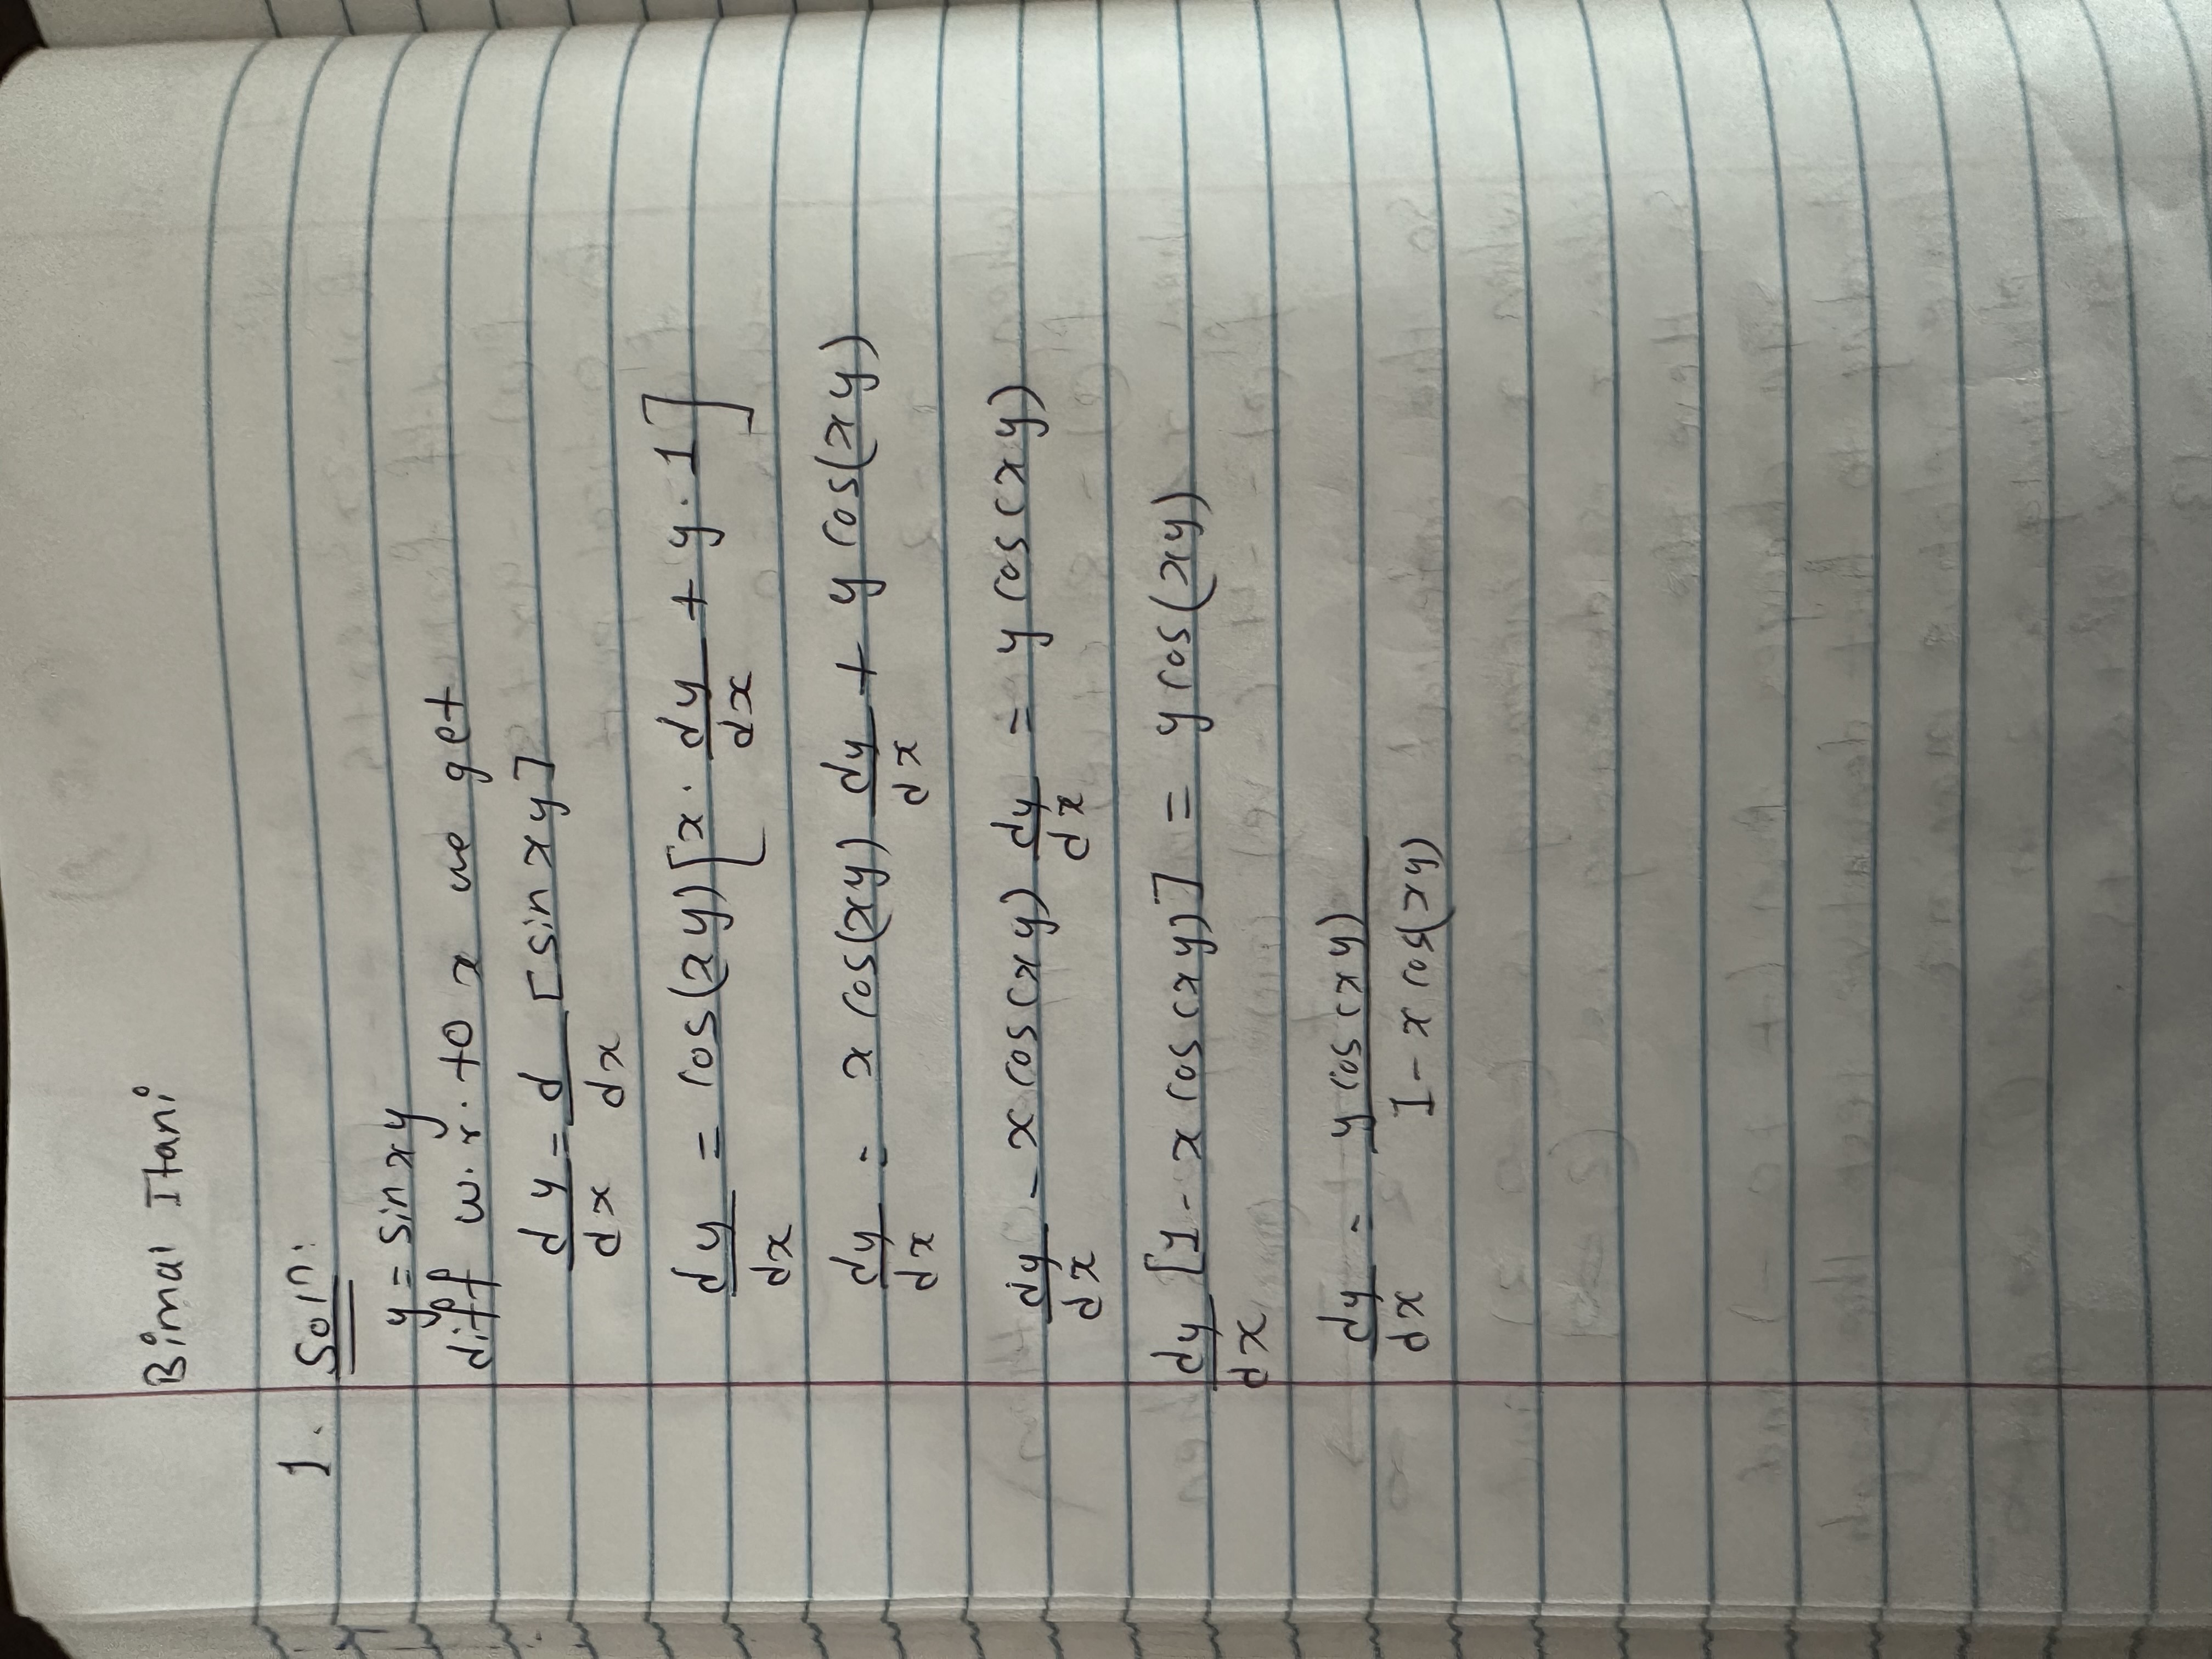 Bimal Itani
1. Soln:
y = sin xy
diff w.r. to x we get
dy/dx = d/dx [sin xy]
dy/dx = cos(xy) [x · dy/dx + y · 1]
dy/dx = x cos(xy) dy/dx + y cos(xy)
dy/dx - x cos(xy) dy/dx = y cos(xy)
dy/dx [1 - x cos(xy)] = y cos(xy)
dy/dx = y cos(xy) / 1 - x cos(xy)